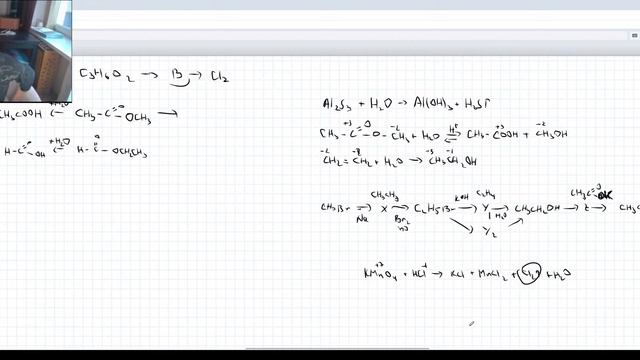 C₃H₆O₂ → B → Cl₂
CH₃COOH ← +H₂O CH₃-C=O OCH₃ →
H-C=O OH ← +H₂O H-C=O OCH₂CH₃
Al₂S₃ + H₂O → Al(OH)₃ + H₂S↑
CH₃-C=O O-CH₃ + H₂O ⇌ CH₃-COOH + CH₃OH
CH₂=CH₂ + H₂O → CH₃CH₂OH
CH₃Br → Na X CH₃CH₃ → Br₂ C₂H₅Br → KOH Y C₂H₄ → H₂O CH₃CH₂OH → Z CH₃C=O OK →
Y₂
KMnO₄ + HCl → KCl + MnCl₂ + Cl₂↑ + H₂O